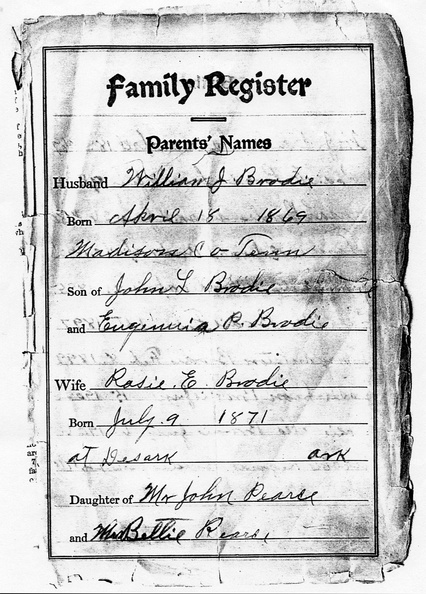 Family Register
Parents' Names
Husband William J Brodie
Born April 18 1869
Madison Co Tenn
Son of John L Brodie
and Eugennia P. Brodie
Wife Rosie. E. Brodie
Born July. 9 1871
at Desark ark
Daughter of Mr John Pearse
and Mrs Bettie Pearse